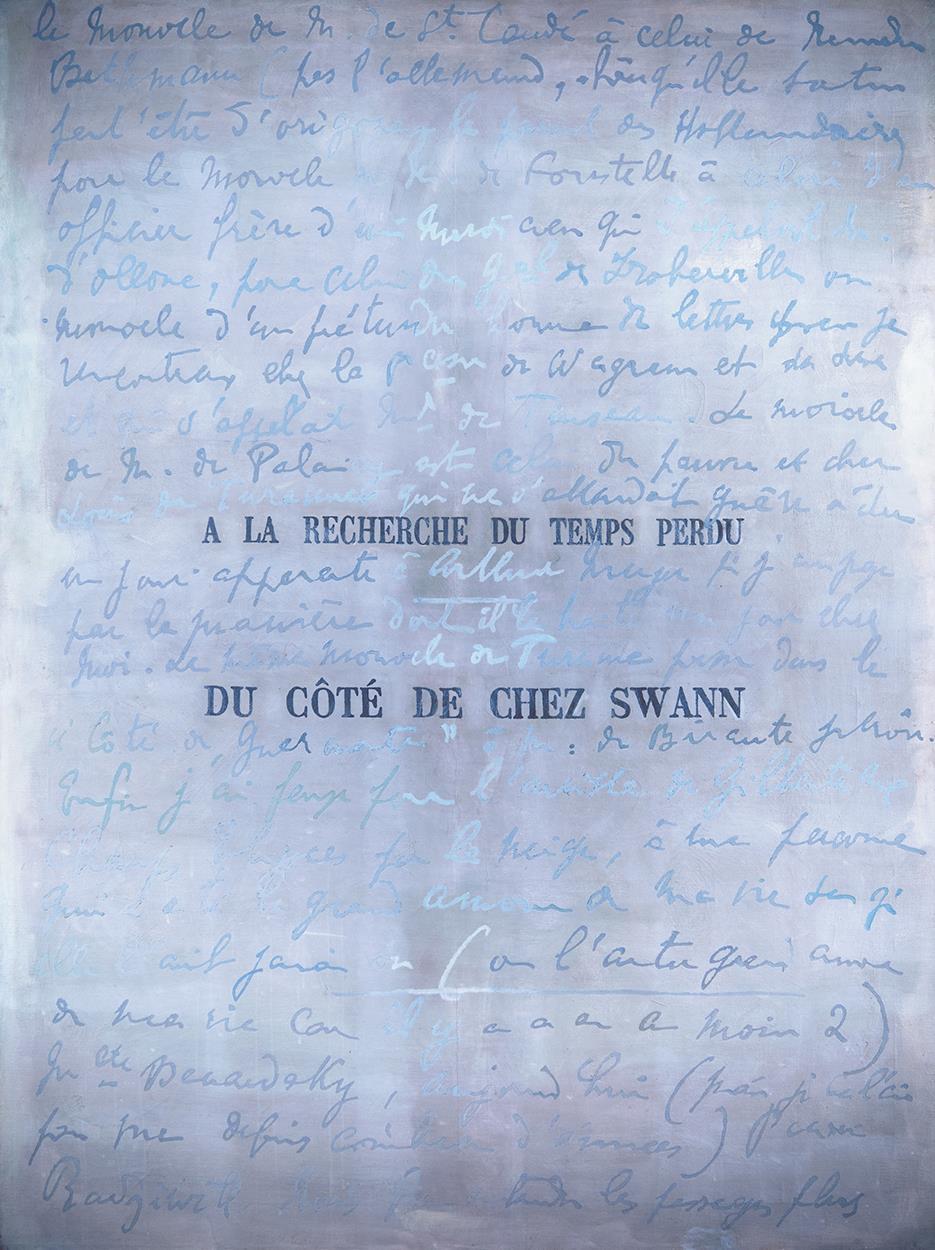 le monocle de M. de St. Candé à celui de
Bethmann (pas l'allemand, bien qu'il le soit
peut être d'origine le parent des Hottinguer
pour le monocle de M. de Forestelle à celui d'un
officier frère d'un musicien qui s'appelait M.
d'Ollone, pour celui du Gal de Froberville au
monocle d'un prétendu homme de lettres que je
rencontrais chez la de Wagram et sa sœur
et qui s'appelait M. de Tinseau. Le monocle
de M. de Palancy est celui du pauvre et cher
Louis de Turenne qui ne s'attendait guère à être
A LA RECHERCHE DU TEMPS PERDU
un jour apparenté à Arthur Meyer si j'en juge
par la manière dont il le traita un jour chez
moi. Le même monocle de Turenne passe dans le
DU CÔTÉ DE CHEZ SWANN
Côté de Guermantes" à M. de Bréauté je crois.
Enfin j'ai pensé pour l'arrivée de Gilberte aux
Champs Élysées par la neige, à une personne
qui a été le grand amour de ma vie sans qu'
elle l'ait jamais su (ou l'autre grand amour
de ma vie car il y en a au moins 2)
Benardaky, aujourd'hui (mais je ne l'ai
pas vue depuis combien d'années)
Radziwill. Mais les passages plus